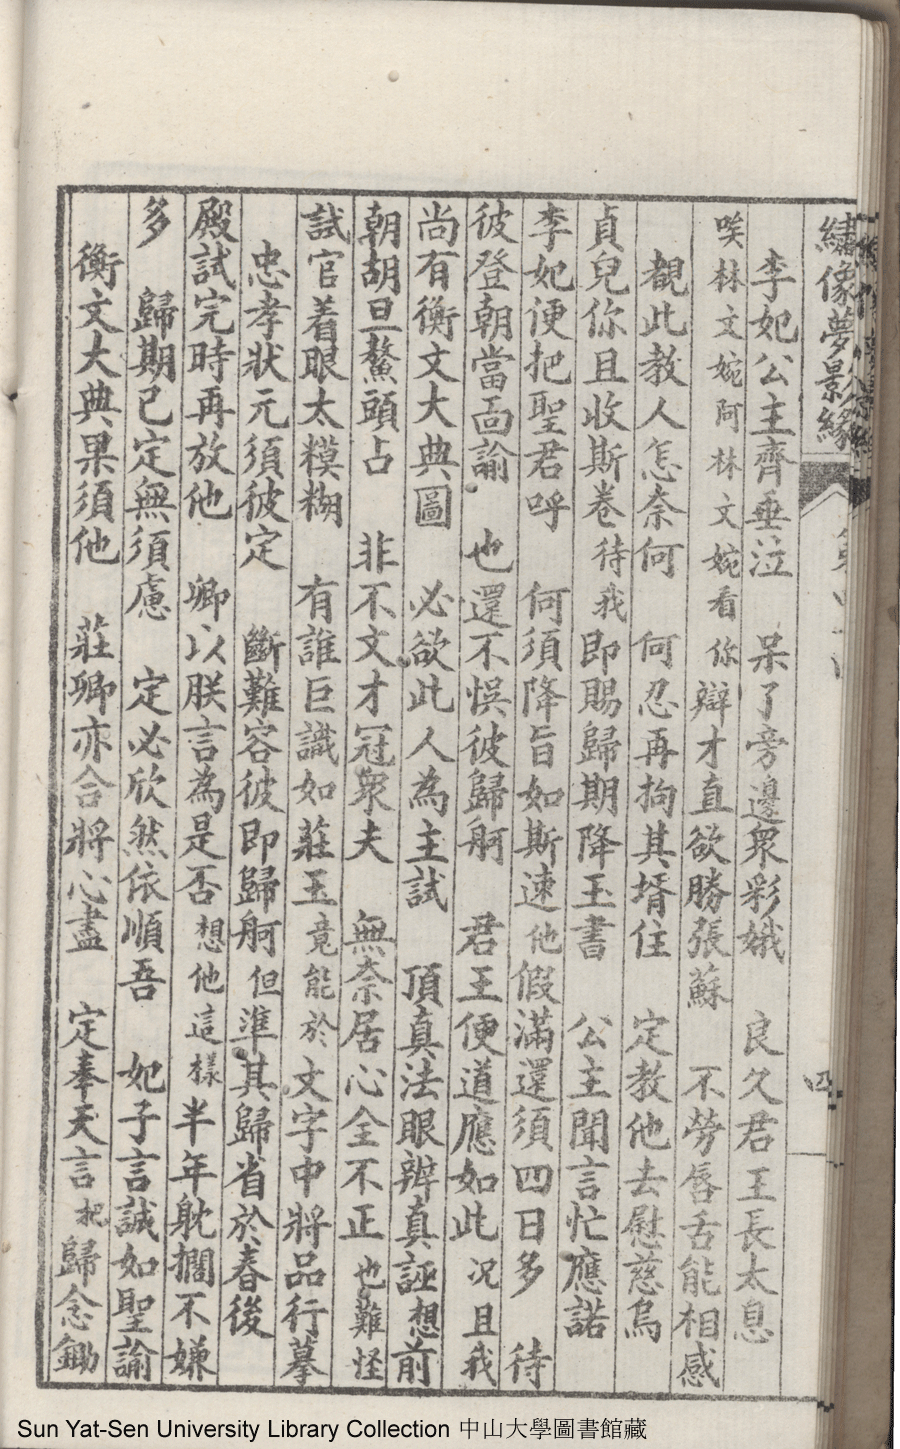 繡像夢景緣
四
李妃公主齊垂泣　呆了旁邊眾彩娥　良久君王長太息
唉林文婉阿林文婉看你辯才直欲勝張蘇　不勞唇舌能相感
覩此教人怎奈何　何忍再拘其壻住　定教他去慰慈烏
貞兒你且收斯卷　待我即賜歸期降玉書　公主聞言忙應諾
李妃便把聖君呼　何須降旨如斯速　他假滿還須四日多　待
彼登朝當面諭　也還不悞彼歸舸　君王便道應如此　况且我
尚有衡文大典圖　必欲此人為主試　頂真法眼辨真誣　想前
朝胡旦鰲頭占　非不文才冠眾夫　無奈居心全不正　也難怪
試官着眼太糢糊　有誰巨識如莊玉　竟能於文字中將品行摹
忠孝狀元須彼定　斷難容彼即歸舸　但準其歸省於春後
殿試完時再放他　卿以朕言為是否　想他這樣半年躭擱不嫌
多　歸期已定無須慮　定必欣然依順吾　妃子言誠如聖諭
衡文大典果須他　莊卿亦合將心盡　定奉天言把歸念鋤
Sun Yat-Sen University Library Collection 中山大學圖書館藏